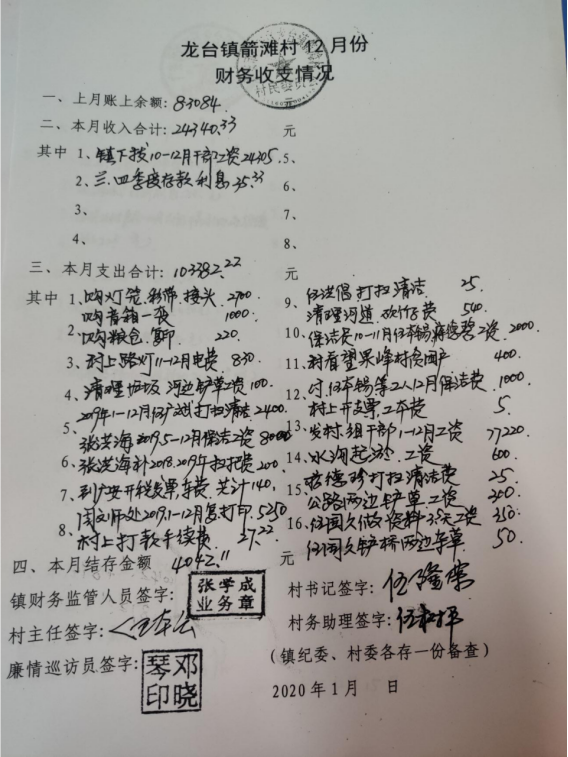 龙台镇箭滩村12月份
财务收支情况
村民委员会
一、上月账上余额:83084. 元
二、本月收入合计:24340.33 元
其中 1、镇下拨10-12月干部工资24305. 5、
2、三.四季度存款利息35.33 6、
3、 7、
4、 8、
三、本月支出合计:103382.22 元
其中 1、购灯笼.彩带.接头.2700.
购音箱一套 1000.
2、购粮仓. 220.
3、村上路灯11-12月电费.830.
4、清理垃圾 河边铲草工资100.
2019年1-12月任广斌打扫清洁2400.
5、张洪海2019.5-12月保洁工资8000
6、张洪海补2018.2019年 200.
7、到广安开税发票.车费.共计140.
2019.1-12月复打印.5250
8、村上打款手续费. 27.22.
9、任洪倡打扫清洁 25.
清理河道. 费. 540.
10、保洁员10-11月任本锡. 工资.2000.
11、村看望果峰村贫困户 400.
12、付.任本锡等2人12月保洁费.1000.
村上开支票.工本费 5.
13、发村.组干部1-12月工资 77220.
14、水沟起淤.工资 600.
15、 打扫清洁费 25.
公路两边铲草工资 200.
16、任国久做资料3.5天工资 350.
任国久铲桥两边杂草. 50.
四、本月结存金额 4042.11 元
镇财务监管人员签字: 张学成
业务章
村书记签字:任隆荣
村主任签字:
村务助理签字:
廉情巡访员签字: 邓晓
琴印
(镇纪委、村委各存一份备查)
2020年1月 日